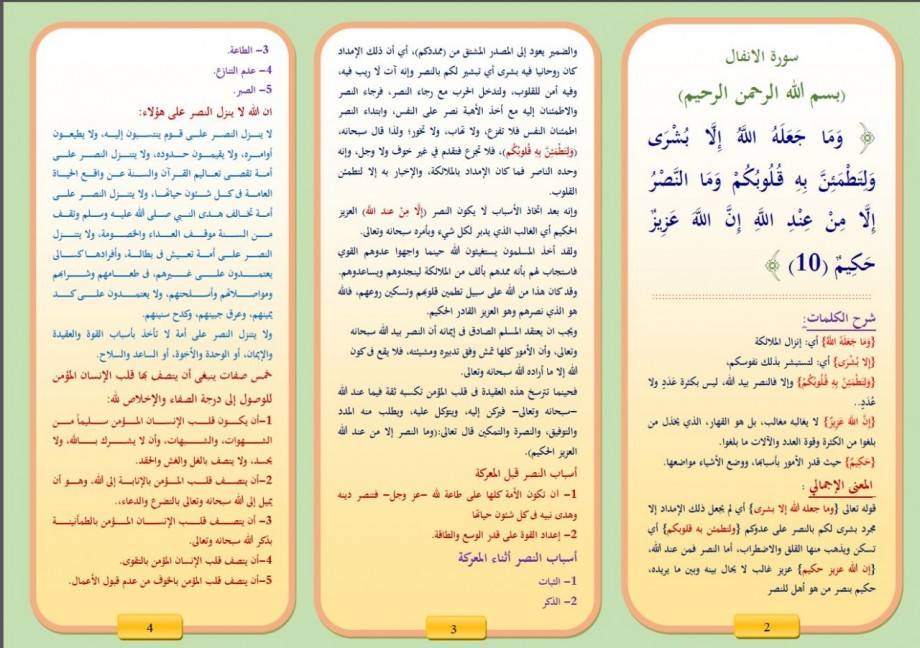 سورة الانفال
(بسم الله الرحمن الرحيم)
﴿ وَمَا جَعَلَهُ اللَّهُ إِلَّا بُشْرَى
وَلِتَطْمَئِنَّ بِهِ قُلُوبُكُمْ وَمَا النَّصْرُ
إِلَّا مِنْ عِنْدِ اللَّهِ إِنَّ اللَّهَ عَزِيزٌ
حَكِيمٌ (10) ﴾
شرح الكلمات:
{وَمَا جَعَلَهُ اللَّهُ} أي: إنزال الملائكة
{إلا بُشْرَى} أي: لتستبشر بذلك نفوسكم،
{وَلِتَطْمَئِنَّ بِهِ قُلُوبُكُمْ} وإلا فالنصر بيد الله، ليس بكثرة عَدَدٍ ولا
عُدَدٍ..
{إنَّ الله عَزِيزٌ} لا يغالبه مغالب، بل هو القهار، الذي يخذل من
بلغوا من الكثرة وقوة العدد والآلات ما بلغوا.
{حَكِيمٌ} حيث قدر الأمور بأسبابها، ووضع الأشياء مواضعها.
المعنى الإجمالي :
قوله تعالى {وما جعله الله إلا بشرى} أي لم يجعل ذلك الإمداد إلا
مجرد بشرى لكم بالنصر على عدوكم {ولتطمئن به قلوبكم} أي
تسكن ويذهب منها القلق والاضطراب، أما النصر فمن عند الله،
{إن الله عزيز حكيم} عزيز غالب لا يحال بينه وبين ما يريده،
حكيم بنصر من هو أهل للنصر
2
والضمير يعود إلى المصدر المشتق من (ممدكم)، أي أن ذلك الإمداد
كان روحانيا فيه بشرى أي تبشير لكم بالنصر وإنه آت لا ريب فيه،
وفيه أمن للقلوب، ولتدخل الحرب مع رجاء النصر، فرجاء النصر
والاطمئنان إليه مع أخذ الأهبة نصر على النفس، وابتداء النصر
اطمئنان النفس فلا تفزع، ولا تهاب، ولا تخور؛ ولذا قال سبحانه،
(وَلِتَطْمَئِنَّ بِهِ قُلُوبُكُم)، فلا تجزع فتقدم في غير خوف ولا وجل، وإنه
وحده الناصر فما كان الإمداد بالملائكة، والإخبار به إلا لتطمئن
القلوب.
وإنه بعد اتخاذ الأسباب لا يكون النصر (إلَّا مِنْ عند الله) العزيز
الحكيم أي الغالب الذي يدبر لكل شيء وبأمره سبحانه وتعالى.
ولقد أخذ المسلمون يستغيثون الله حينما واجهوا عدوهم القوي
فاستجاب لهم بأنه ممدهم بألف من الملائكة لينجدوهم ويساعدوهم.
وقد كان هذا من الله على سبيل تطمين قلوبهم وتسكين روعهم، فالله
هو الذي نصرهم وهو العزيز القادر الحكيم.
ويجب ان يعتقد المسلم الصادق في إيمانه أن النصر بيد الله سبحانه
وتعالى، وأن الأمور كلها تمش وفق تدبيره ومشيئته، فلا يقع في كون
الله إلا ما أراده الله سبحانه وتعالى.
فحينما تترسخ هذه العقيدة في قلب المؤمن تكسبه ثقة فيما عند الله
–سبحانه وتعالى– فيركن إليه، ويتوكل عليه، ويطلب منه المدد
والتوفيق، والنصرة والتمكين قال تعالى:(وما النصر إلا من عند الله
العزيز الحكيم).
أسباب النصر قبل المعركة
1– ان تكون الأمة كلها على طاعة لله –عز وجل– فتنصر دينه
وهدى نبيه في كل شئون حياتها
2– إعداد القوة على قدر الوسع والطاقة.
أسباب النصر أثناء المعركة
1– الثبات
2– الذكر
3
3– الطاعة.
4– عدم التنازع.
5– الصبر.
ان الله لا ينزل النصر على هؤلاء:
لا ينزل النصر على قوم ينتسبون إليه، ولا يطيعون
أوامره، ولا يقيمون حدوده، ولا يتنزل النصر على
أمة تقصى تعاليم القرآن والسنة عن واقع الحياة
العامة فى كل شئون حياتها، ولا يتنزل النصر على
أمة تخالف هدى النبي صلى الله عليه وسلم وتقف
من السنة موقف العداء والخصومة، ولا يتنزل
النصر على أمة تعيش فى بطالة، وأفرادها كسالى
يعتمدون على غيرهم، فى طعامهم وشرابهم
ومواصلاتهم وأسلحتهم، ولا يعتمدون على كد
يمينهم، وعرق جبينهم، وكدح سنينهم.
ولا يتنزل النصر على أمة لا تأخذ بأسباب القوة والعقيدة
والإيمان، أو الوحدة والأخوة، أو الساعد والسلاح.
خمس صفات ينبغي أن يتصف بها قلب الإنسان المؤمن
للوصول إلى درجة الصفاء والإخلاص لله:
1–أن يكون قلب الإنسان المؤمن سليماً من
الشهوات، والشبهات، وأن لا يشرك بالله، ولا
يحسد، ولا يتصف بالغل والغش والحقد.
2–أن يتصف قلب المؤمن بالإنابة إلى الله، وهو أن
يميل إلى الله سبحانه وتعالى بالتضرع والدعاء،.
3– أن يتصف قلب الإنسان المؤمن بالطمأنينة
بذكر الله سبحانه وتعالى.
4–أن يتصف قلب الإنسان المؤمن بالتقوى.
5–أن يتصف قلب المؤمن بالخوف من عدم قبول الأعمال.
4